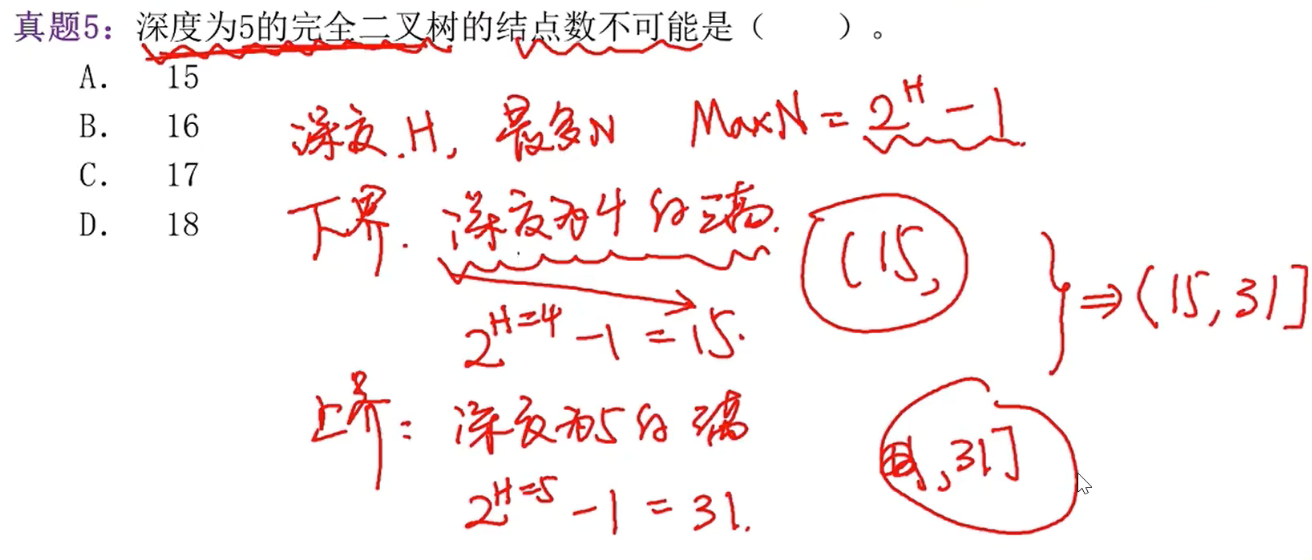 真题5：深度为5的完全二叉树的结点数不可能是（ ）。
A. 15
B. 16
C. 17
D. 18
深度.H, 最多N MaxN = 2^H - 1
下界. 深度为4的满. (15,
2^H=4 - 1 = 15.
} ⇒ (15, 31]
上界: 深度为5的满
, 31]
2^H=5 - 1 = 31.